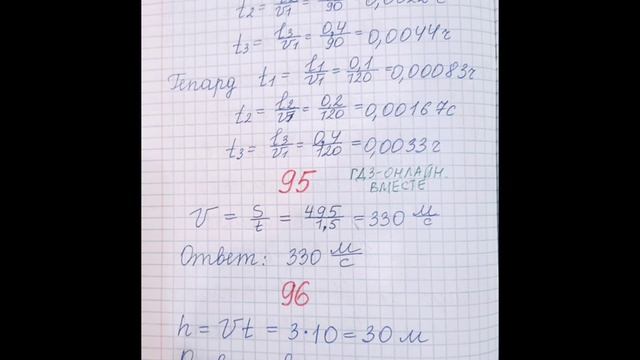 t₂ = l₂/v₁ = 0,2/90 = 0,0022 ч
t₃ = l₃/v₁ = 0,4/90 = 0,0044 ч
Гепард t₁ = l₁/v₁ = 0,1/120 = 0,00083 ч
t₂ = l₂/v₁ = 0,2/120 = 0,00167 с
t₃ = l₃/v₁ = 0,4/120 = 0,0033 ч
95 ГДЗ-ОНЛАЙН.
ВМЕСТЕ
V = S/t = 495/1,5 = 330 м/с
Ответ: 330 м/с
96
h = Vt = 3·10 = 30 м